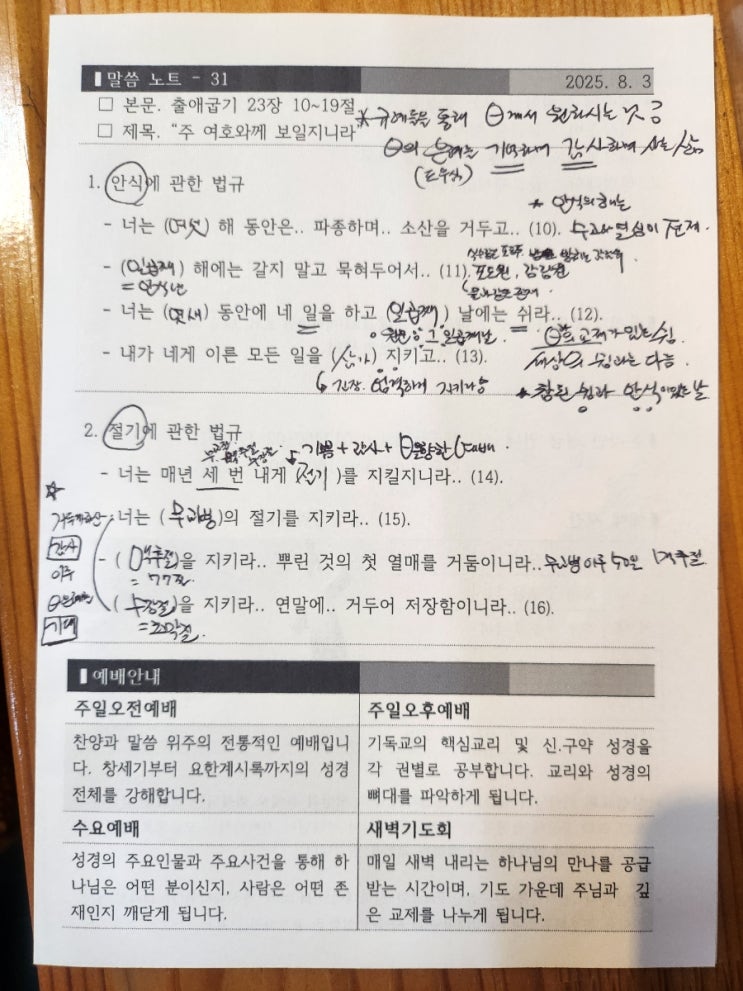 ▌말씀 노트 - 31 2025. 8. 3
□ 본문. 출애굽기 23장 10~19절
□ 제목. "주 여호와께 보일지니라"
기억하며 감사하며 사는 삶
1. 안식에 관한 법규
- 너는 (여섯) 해 동안은.. 파종하며.. 소산을 거두고.. (10). 수고와 열심이 전제.
- (일곱째) 해에는 갈지 말고 묵혀두어서.. (11). 포도원, 감람원
= 안식년
- 너는 (엿새) 동안에 네 일을 하고 (일곱째) 날에는 쉬라.. (12).
- 내가 네게 이른 모든 일을 (삼가) 지키고.. (13).
* 참된 쉼과 안식이 있는 날
2. 절기에 관한 법규
기쁨 + 감사 +
- 너는 매년 세 번 내게 (절기)를 지킬지니라.. (14).
- 너는 (무교병)의 절기를 지키라.. (15).
감사
- (맥추절)을 지키라.. 뿌린 것의 첫 열매를 거둠이니라.. 무교병 이후 50일
이후
= 77절
(수장절)을 지키라.. 연말에.. 거두어 저장함이니라.. (16).
기대
= 초막절.
▌예배안내
주일오전예배
찬양과 말씀 위주의 전통적인 예배입니
다. 창세기부터 요한계시록까지의 성경
전체를 강해합니다.
주일오후예배
기독교의 핵심교리 및 신.구약 성경을
각 권별로 공부합니다. 교리와 성경의
뼈대를 파악하게 됩니다.
수요예배
성경의 주요인물과 주요사건을 통해 하
나님은 어떤 분이신지, 사람은 어떤 존
재인지 깨닫게 됩니다.
새벽기도회
매일 새벽 내리는 하나님의 만나를 공급
받는 시간이며, 기도 가운데 주님과 깊
은 교제를 나누게 됩니다.